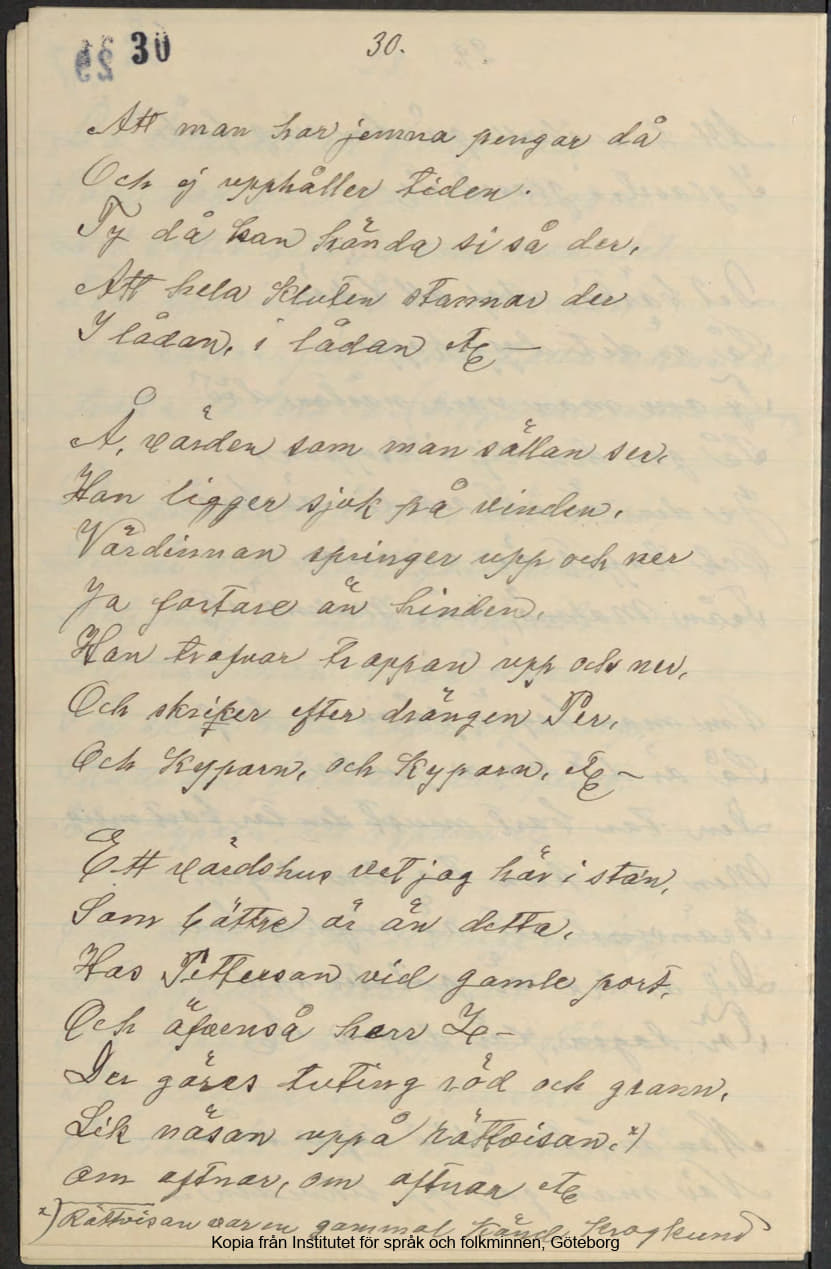 29 30 30.
Att man har jemna pengar då
Och ej upphåller tiden.
Ty då kan hända si så der,
Att hela kluten stannar der
I lådan, i lådan etc —
Å, värden som man sällan ser,
Han ligger sjuk på vinden,
Värdinnan springer upp och ner
Ja fortare än hinden,
Han trafvar trappan upp och ner,
Och skriker efter drängen Per,
Och Kyparn, och Kyparn, etc —
Ett värdshus vet jag här i stan,
Som bättre är än detta,
Hos Petterson vid gamle port,
Och äfvenså herr Z —
Der göres tuting röd och grann,
Lik näsan uppå Rättvisan, x)
Om aftnar, om aftnar etc
x) Rättvisan var en gammal känd krogkund
Kopia från Institutet för språk och folkminnen, Göteborg